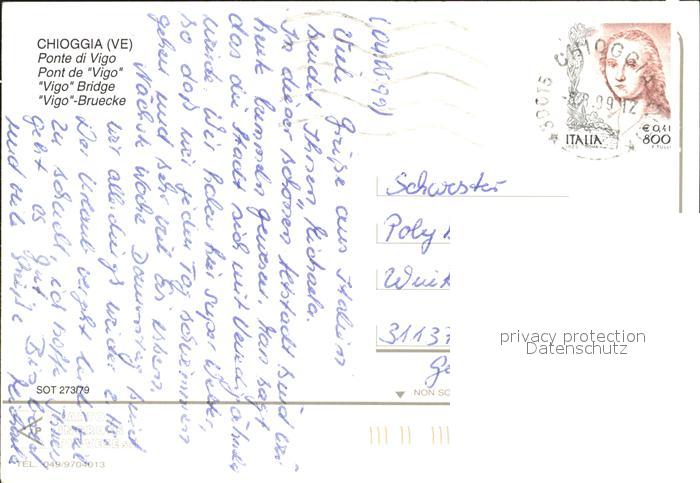 CHIOGGIA (VE)
Ponte di Vigo
Pont de "Vigo"
"Vigo" Bridge
"Vigo"-Bruecke
Viele Grüße aus Italien
sendet Ihnen Michaela.
In dieser schönen Altstadt sind wir
heute bummeln gewesen. Man sagt
das die Stadt sich mit Venedig ähneln
würde. Wir haben hier super Wetter,
so daß wir jeden Tag schwimmen
gehen und sehr viel Eis essen.
Nächste Woche Donnerstag sind
wir allerdings wieder
Der Urlaub vergeht
zu schnell. Ich hoffe Ihnen
geht es gut. Bis bald
und viele Grüße
Michaela
CHIOGGIA
30015
8.99-12
ITALIA
€ 0,41
800
Schwester
Poly
31137
privacy protection
Datenschutz
SOT 273/79
NON SC
TEL. 049/9704013